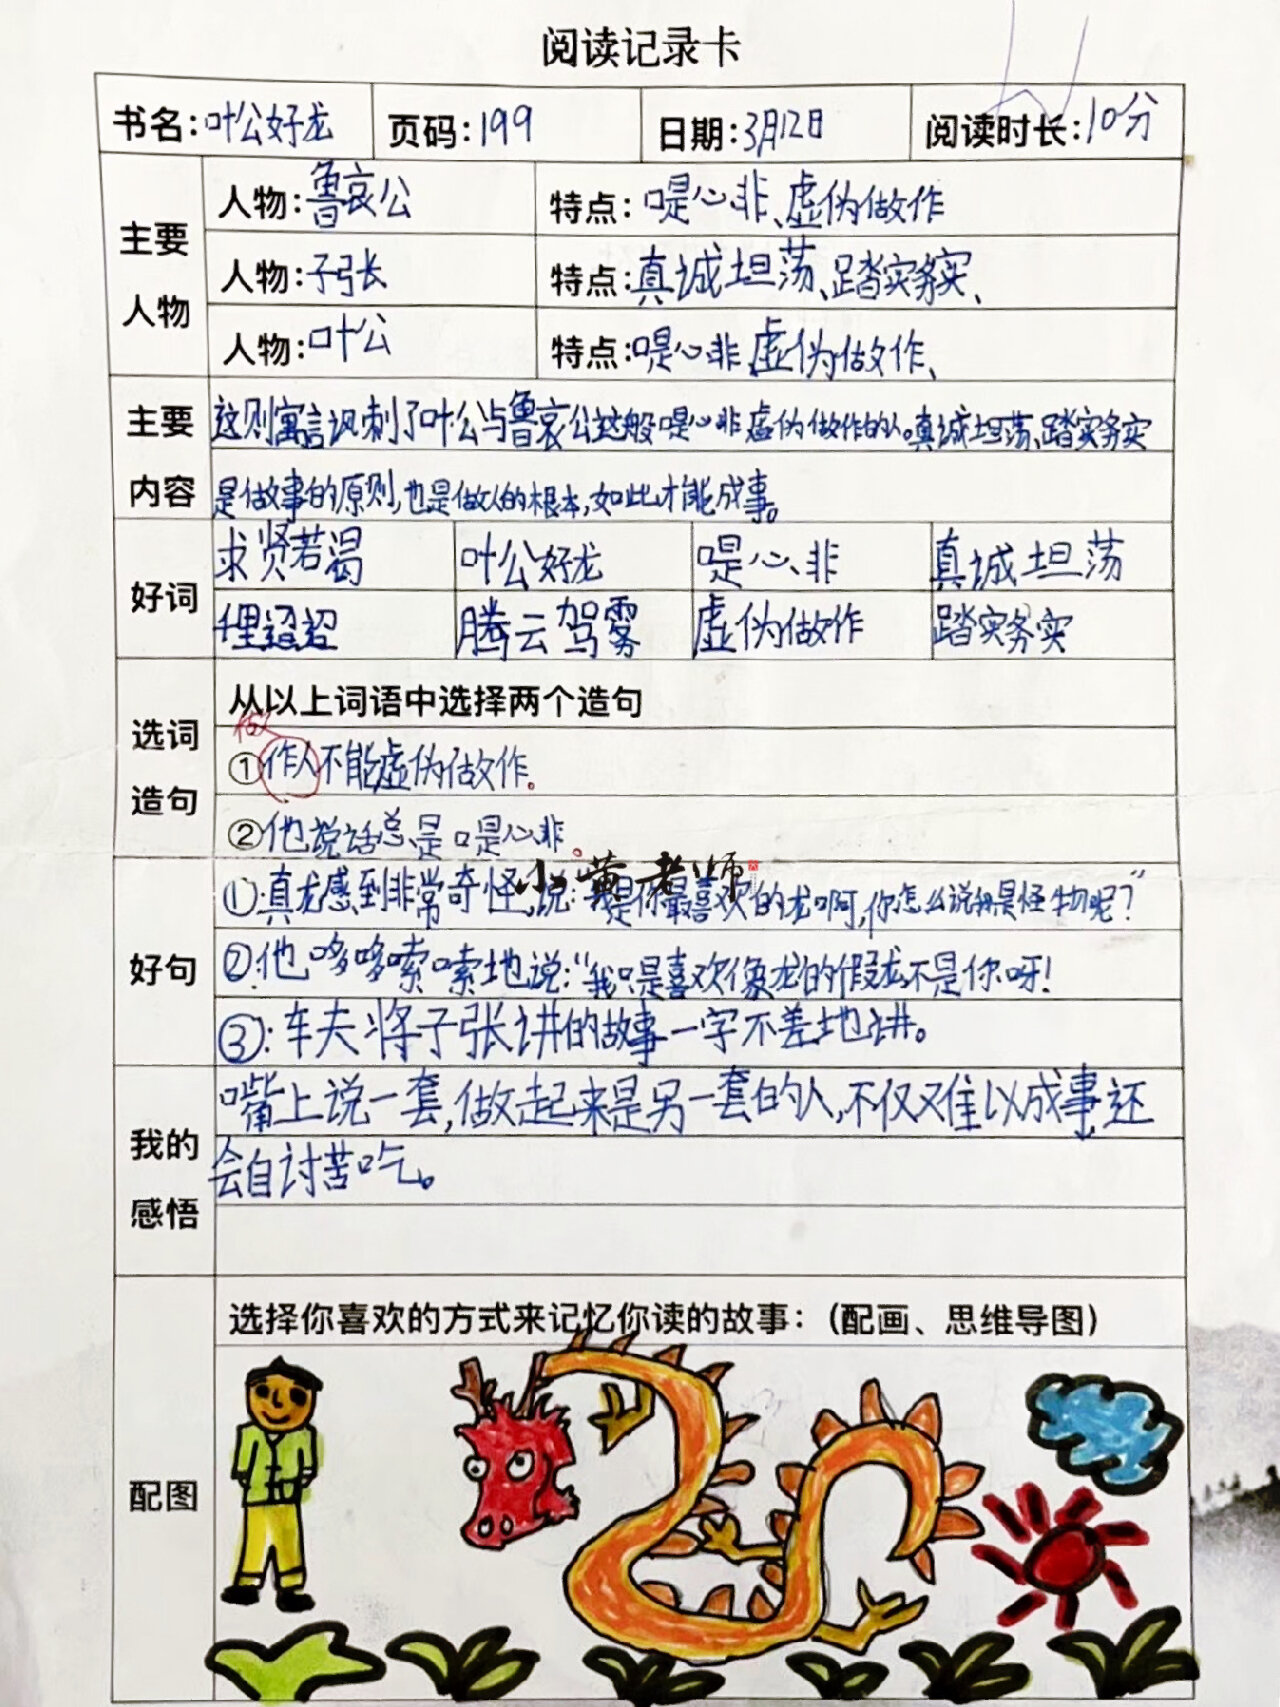 阅读记录卡
书名:叶公好龙 页码:199 日期:3月12日 阅读时长:10分
主要人物
人物:鲁哀公 特点:口是心非、虚伪做作
人物:子张 特点:真诚坦荡、踏实务实、
人物:叶公 特点:口是心非 虚伪做作、
主要内容
这则寓言讽刺了叶公与鲁哀公这般口是心非 虚伪做作的人。真诚坦荡、踏实务实
是做事的原则,也是做人的根本,如此才能成事。
好词
求贤若渴 叶公好龙 口是心非 真诚坦荡
腾云驾雾 虚伪做作 踏实务实
选词造句
从以上词语中选择两个造句
做
①作人不能虚伪做作。
②他说话总是口是心非。
小黄老师
好句
①:真龙感到非常奇怪,说:“我是你最喜欢的龙啊,你怎么说我是怪物呢?”
②:他哆哆嗦嗦地说:“我只是喜欢像龙的假龙不是你呀!
③:车夫将子张讲的故事一字不差地讲。
我的感悟
嘴上说一套,做起来是另一套的人,不仅难以成事还
会自讨苦吃。
配图
选择你喜欢的方式来记忆你读的故事:(配画、思维导图)